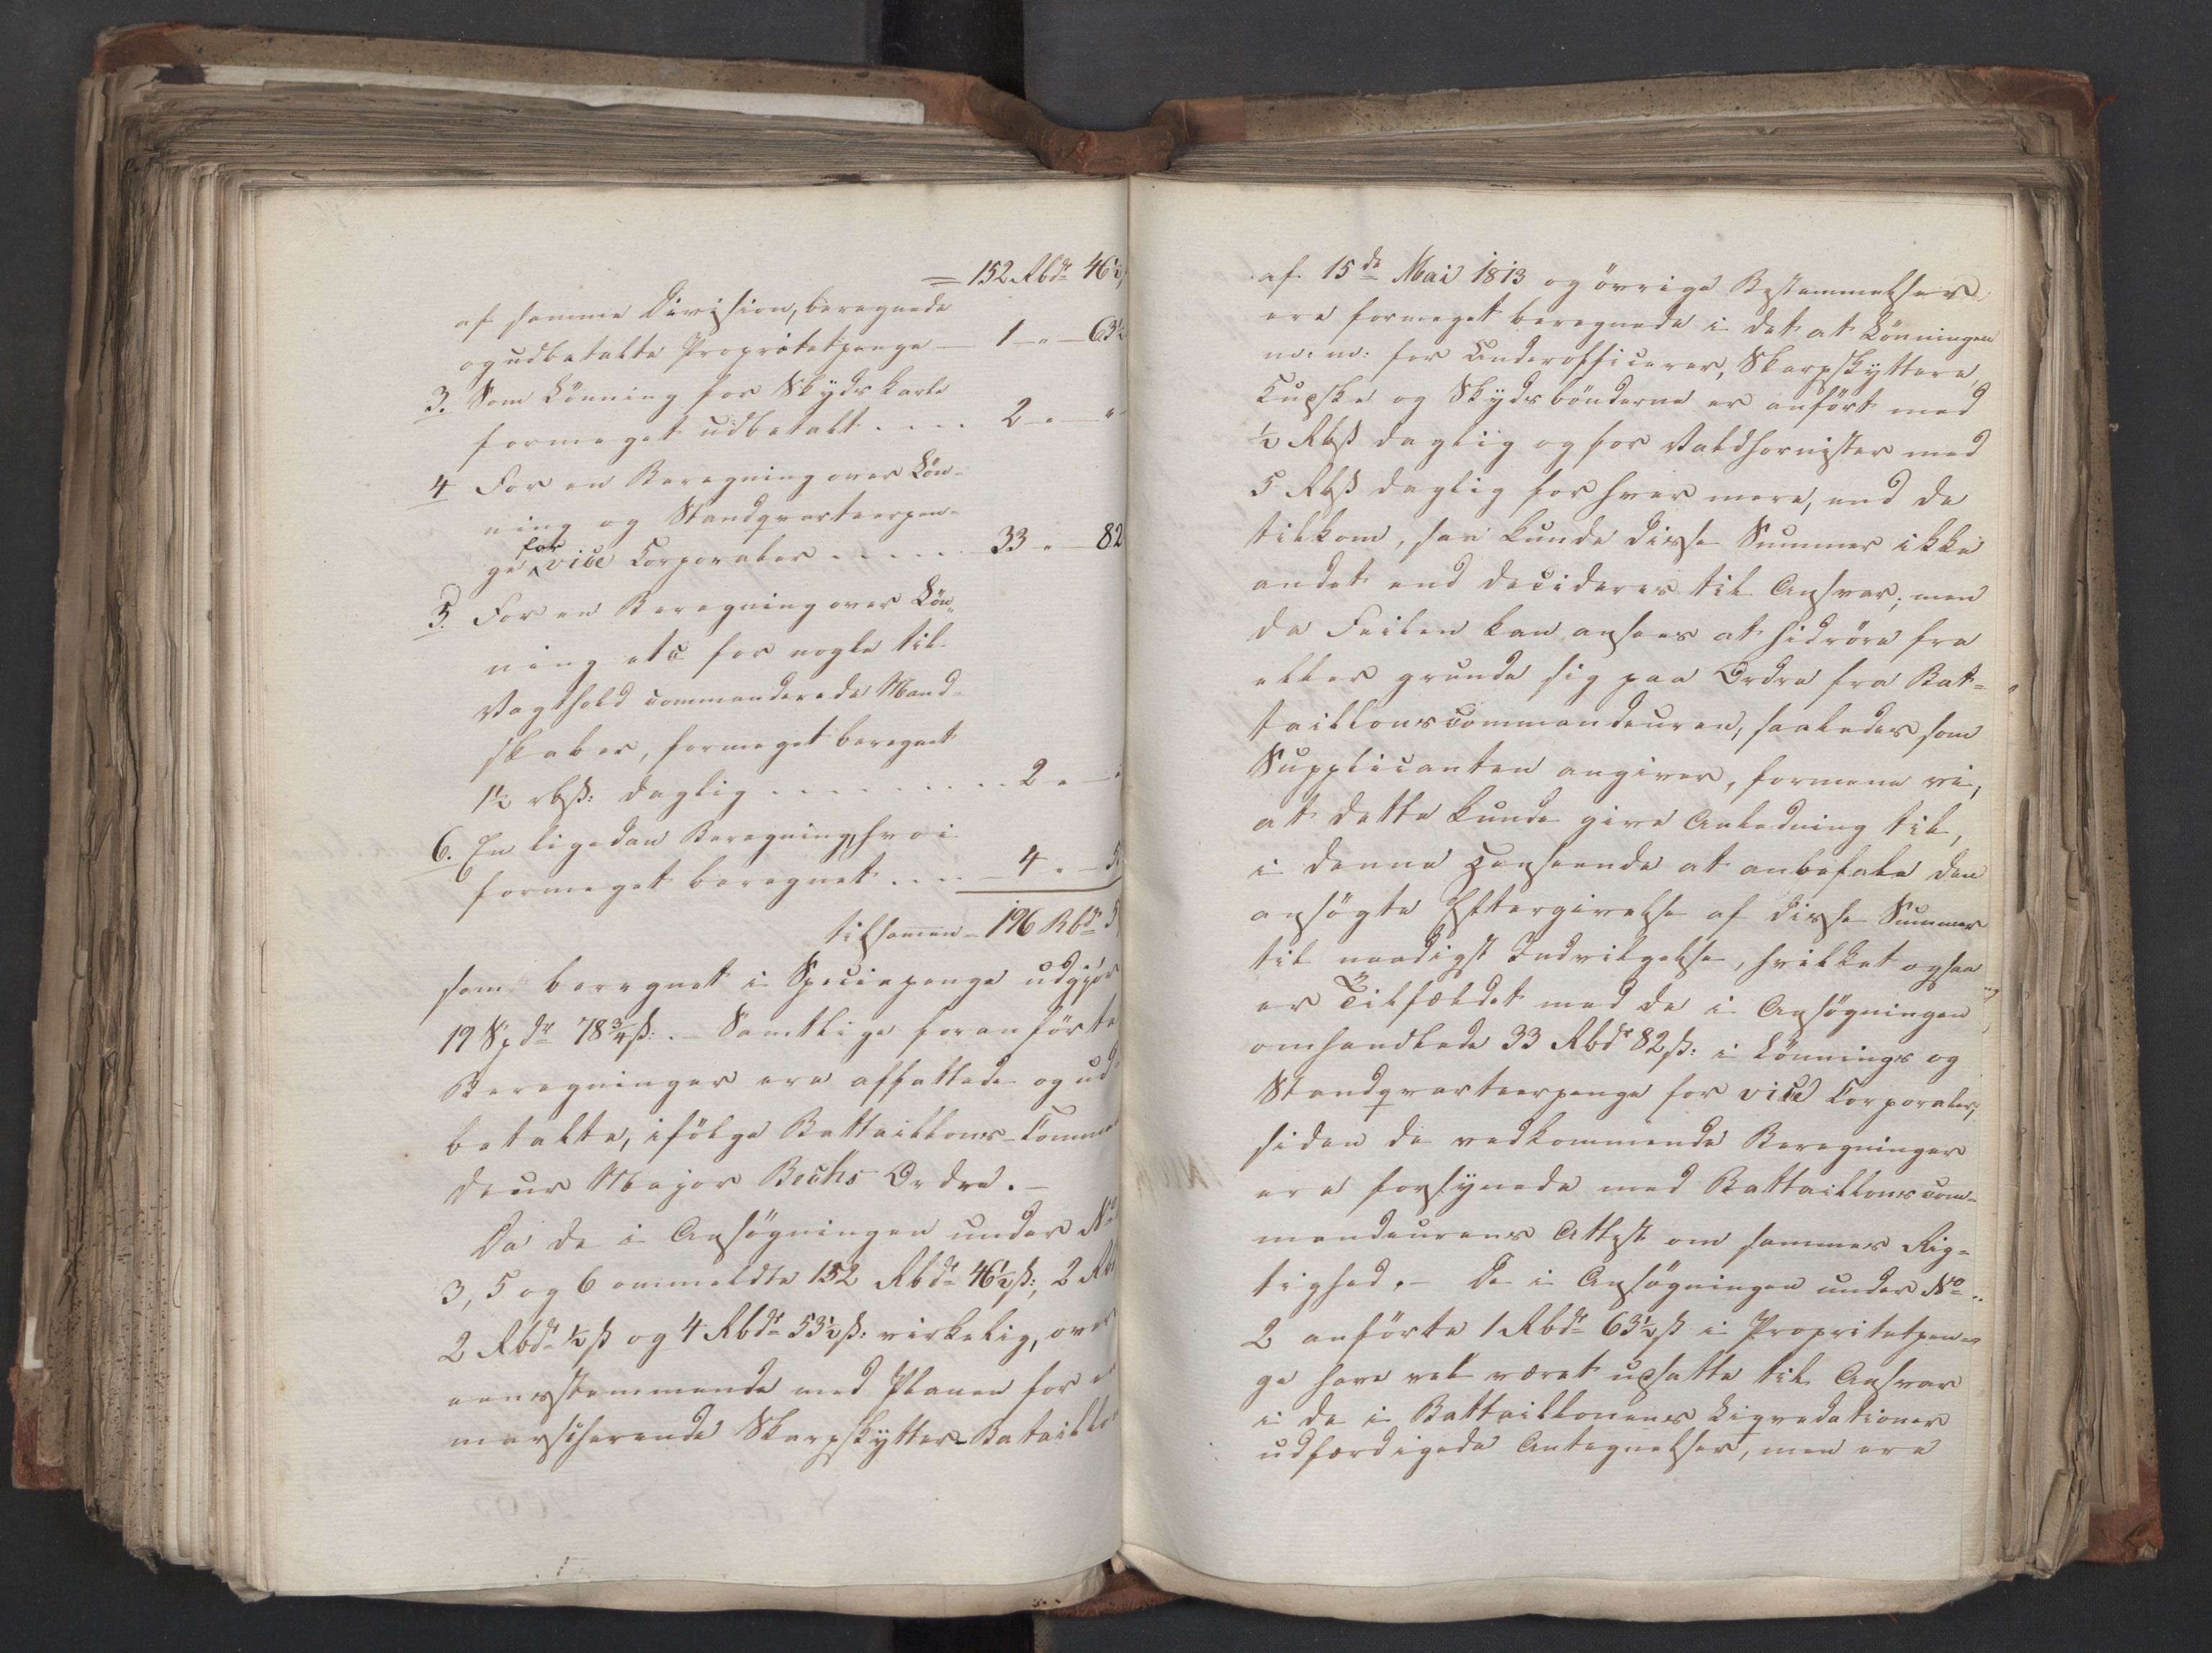 = 152 Rbdr 46½
af samme Division, beregnede
og udbetalte Propritetpenge — 1 — " — 63½
3. Som Lönning for Skydskarle
formeget udbetalt .... 2 — " — "
4 For en Beregning over Lön-
ning og Standqvarteerpen-
ge for vice Corporaler ..... 33 — " — 82
5. For en Beregning over Lön-
ning etc for nogle til
Vagthold commanderede Mand-
skaber, formeget beregnet
1½ rbß: daglig ......... 2 — " —
6. En ligedan Beregning, hvori
formeget beregnet .... 4 — " — 5
tilsamen — 196 Rbdr 5
som beregnet i Speciepenge udgjör
19 Spdr 78¾ß: . — Samtlige foranförte
Beregninger ere affattede og ud-
betalte, ifölge Battaillons-Comman
deur Major Bechs Ordre. —
Da de i Ansögningen under No
3, 5 og 6 ommeldte 152 Rbdr 46½ß:, 2 Rb
2 Rbdr ½ß og 4 Rbdr 53½ß: virkelig, over
eensstemmende med Planen for en
marscherende Skarpskytter-Bataillon
af 15de Mai 1813 og övrige Bestemmelser
ere formeget beregnede i det at Lönningen
m: m: for Underofficerer, Skarpskyttere,
Kudske og Skydsbönderne er anfört med
½ Rbß daglig og for Valdhornister med
5 Rbß daglig for hver mere, end de
tilkom, saa kunde disse Summer ikke
andet end decideres til Ansvar; men
da Feilen kan ansees at hidröre fra
eller grunde sig paa Ordre fra Bat-
taillonscommandeuren, saaledes som
Supplicanten angiver, formene vi,
at dette kunde give Anledning til,
i denne Henseende at anbefale den
ansögte Eftergivelse af disse Summer
til naadigst Indvilgelse, hvilket ogsaa
er Tilfældet med de i Ansögningen
omhandlede 33 Rbdr 82ß: i Lönnings og
Standqvarteerpenge for vice Corporaler,
siden de vedkommende Beregninger
ere forsynede med Battaillonscom-
mandeurens Attest om sammes Rig-
tighed. — De i Ansögningen under No
2 anförte 1 Rbdr 63½ß i Propritetpen-
ge have vel været udsatte til Ansvar
i de i Battaillonens Liqvidationer
udfærdigede Antegnelser, men ere